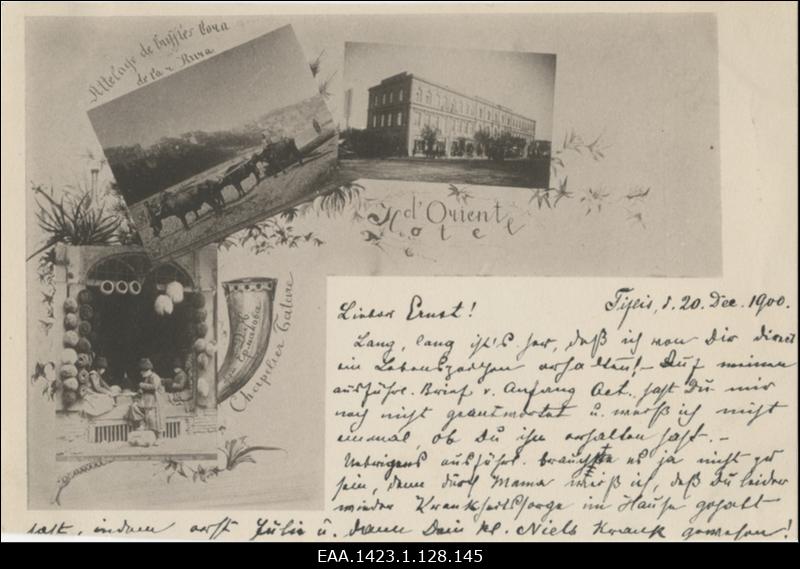 Attelage de buffles
de la r. Kura
Hotel
d'Orient
Chapelier Tatare
Tiflis, d. 20. Dec. 1900.
Lieber Ernst!
Lang, lang ist's her, daß ich von Dir direct
ein Lebenszeichen erhalten! – Auf meinen
ausführl. Brief v. Anfang Oct. hast Du mir
noch nicht geantwortet u. weiß ich nicht
einmal, ob Du ihn erhalten hast. –
Uebrigens ausführl. brauchte es ja nicht zu
sein, denn durch Mama weiß ich, daß Du leider
wieder Krankheitssorge im Hause gehabt
hast, indem erst Julie u. dann Dein kl. Niels krank gewesen!
EAA.1423.1.128.145